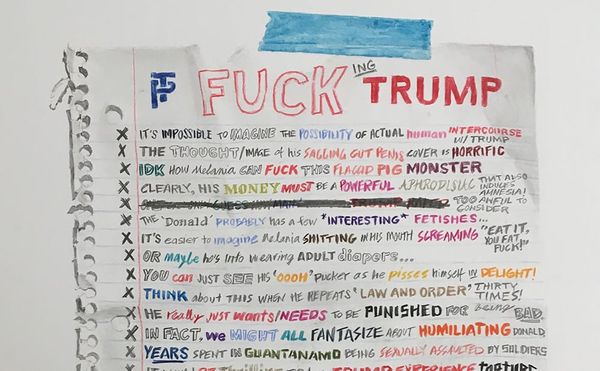 TP FUCKING TRUMP
X IT'S IMPOSSIBLE TO IMAGINE THE POSSIBILITY OF ACTUAL human INTERCOURSE W/ TRUMP
X THE THOUGHT/IMAGE of his SAGGING GUT PENIS COVER is HORRIFIC
X IDK HOW Melania CAN FUCK THIS FLACCID PIG MONSTER
X CLEARLY, HIS MONEY MUST BE A POWERFUL APHRODISIAC THAT ALSO INDUCES AMNESIA!
TOO AWFUL TO CONSIDER
X THE 'Donald' PROBABLY HAS a few *INTERESTING* FETISHES...
X IT'S easier to imagine Melania SHITTING IN HIS MOUTH SCREAMING "EAT IT, YOU FAT FUCK!"
X OR maybe he's into WEARING ADULT diapers...
X YOU can JUST SEE HIS 'OOOH' pucker as he pisses himself in DELIGHT!
X THINK about THIS WHEN HE REPEATS 'LAW AND ORDER' THIRTY TIMES!
X HE really just wants/NEEDS TO BE PUNISHED FOR being BAD.
X IN FACT, WE MIGHT ALL FANTASIZE ABOUT HUMILIATING DONALD.
X YEARS SPENT IN GUANTANAMO BEING SEXUALLY ASSAULTED BY SOLDIERS
TRUMP EXPERIENCE TORTURE